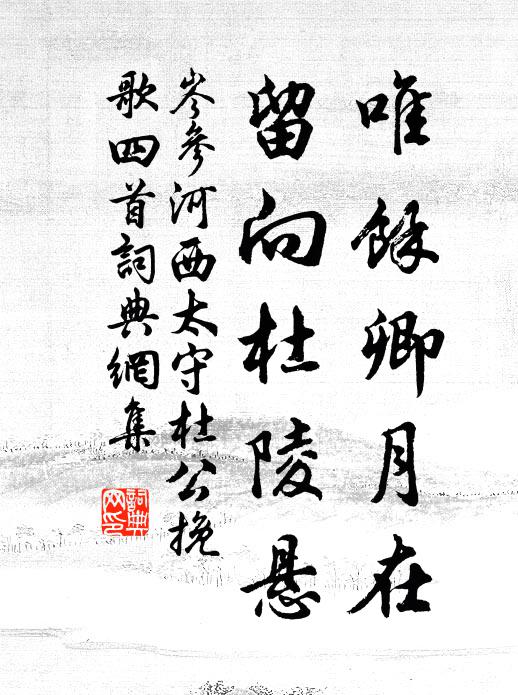 唯餘卿月在
留向杜陵悬
岑參河西太守杜公挽
歌四首詞典網集
詞典網印